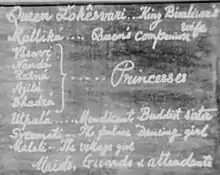 Queen Lokêsvari... King Bimbisar's
Wife
Mallika.... Queen's Companion
Vasavi
Nandá
Ratná
Ajitá
Bhadrá
..... Princesses
Uthalá..... Mendicant Buddist sister
Sreemati - The palace Dancing girl
Malati - The village girl
Maids, Guards & attendants